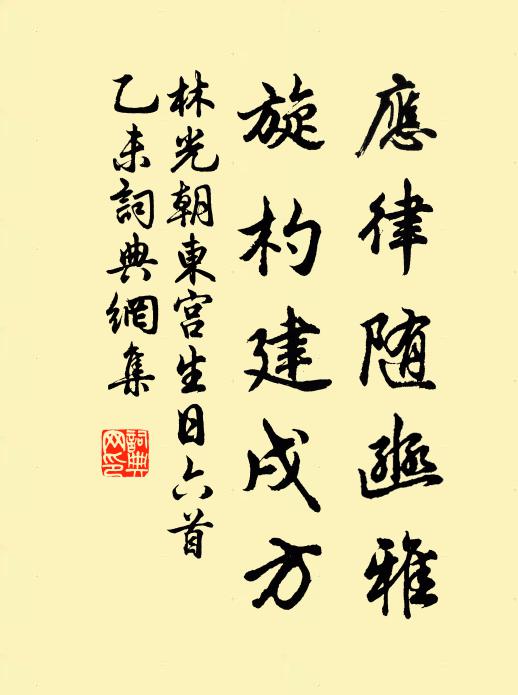 應律随豳雅
旋杓建戌方
林光朝東宫生日六首
乙未詞典網集
詞典
网印